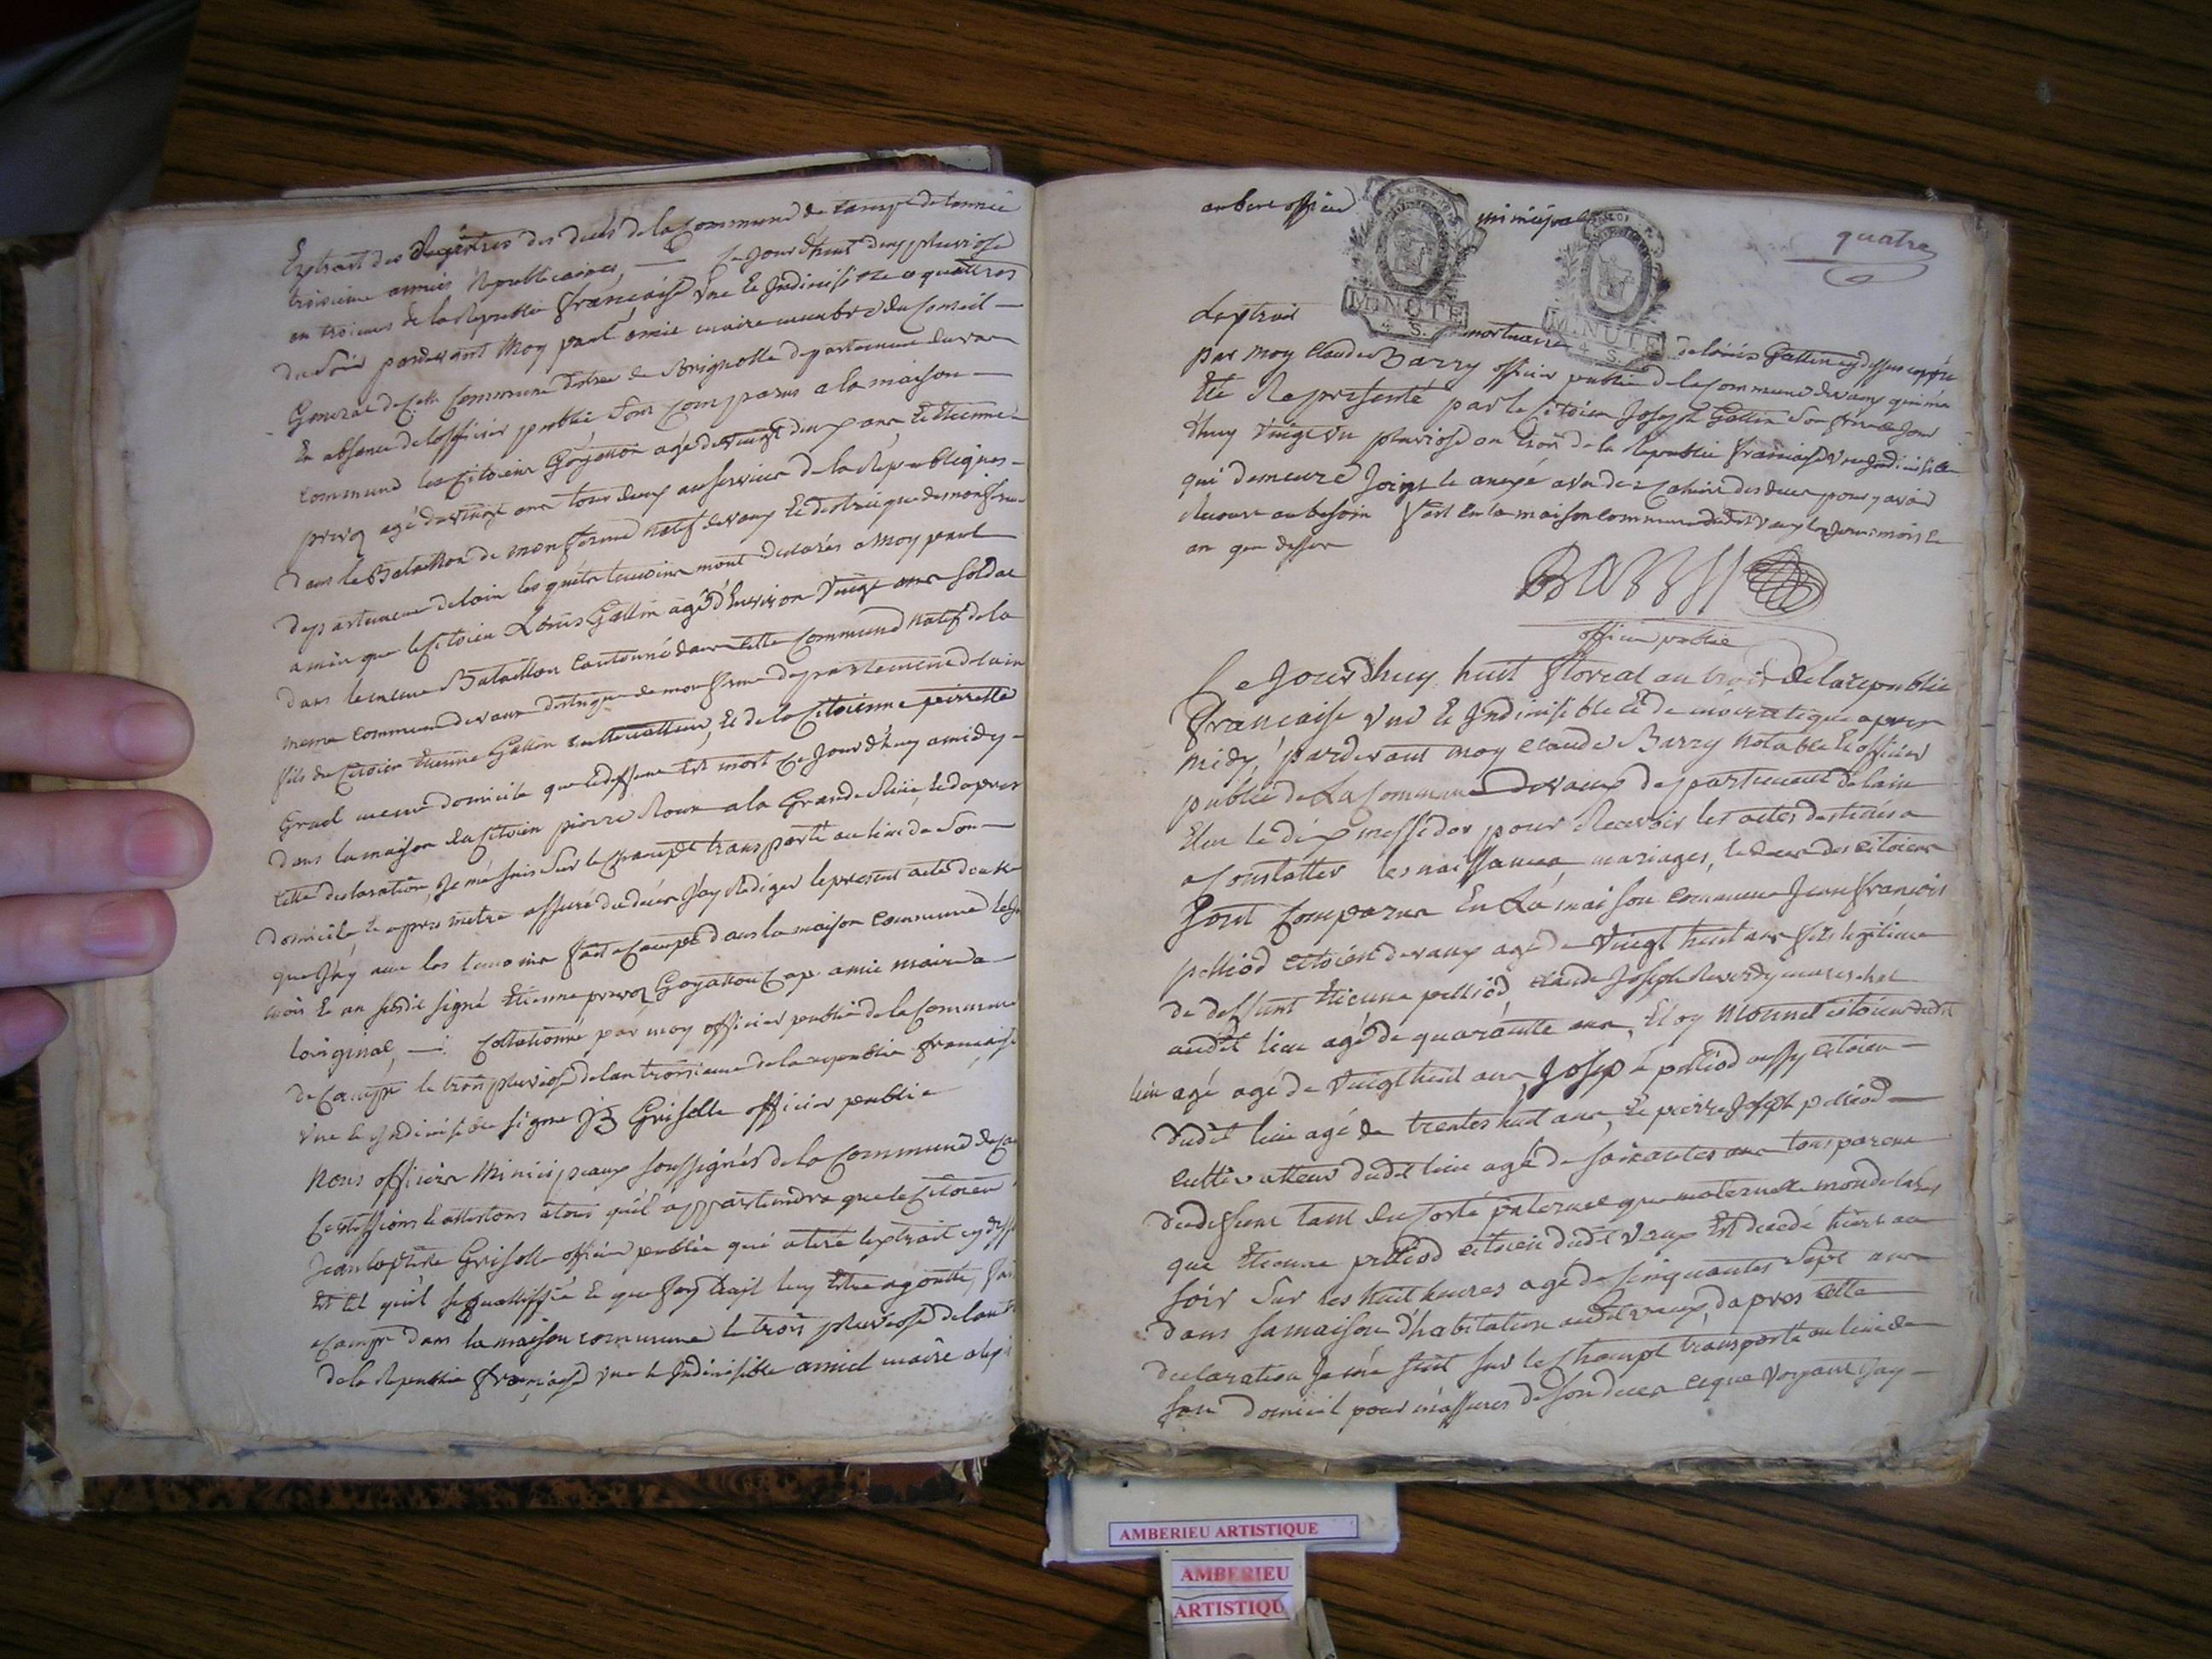 Extrait des Registres des decés de la Commune de camps de lannée
troisieme année Republicaines, — Ce jourd'huit deux pluviose
an troisieme de la Republic francaise vne et Indivisible a quattres
du soir pardevant Moy paul amic maire membre du Conseil —
General de Cette Commune distric de Brignolle departement du var
En absence de lofficier public Sont Comparus a la maison —
commune les Citoiens Goyatton agé de vingt deux ans, Et Etienne
prevoz agé de vingt ans tous deux au service de la Republiques —
dans le Bataillon de mont ferme natif de vaux Et distrique de montferme
departement de lain les quels temoins mont declarés a Moy paul
amic que le Citoien Louis Gallin agé d'Environ Vingt ans soldat
dans le meme Bataillon Cantonné dans cette Commune natif de la
meme commune de vaux distrique de mont ferme departement de lain
fils du Citoien Etienne Gallin Cultivatteur, Et de la Citoienne peirrette
meme domicile que le deffunt Est mort Ce Jour d'huy a midy —
dans la maison du Citoien pierre Roux a la Grande Rüe, Et dapres
Cette declaration, Je me suis Sur le Champt transporté au lieu de Son —
domicile Et apres metre assuré du deces J'ay Rediger le present acte
que J'ay avec les temoins fait a Camps dans la maison commune
mois Et an susdit signé Etienne prevoz Goyatton amic maire
loriginal, — Collationné par moy officier public de la Commune
de Camps le trois pluviose de lan troisieme de la republic francaise
vne Et Indivisible signé J B Grisolle officier public —
Nous officiers Municipaux soussignés de la Commune de Ca
Certiffions Et attestons a tous qu'il appartiendra que le Citoien
Jean baptiste Grisolle officier public qui a tiré lextrait cy dess
Est tel qu'il se qualliffie Et que foy doit luy Etre ajoutte, fai
a Camps dans la maison commune le trois pluviose de lan
de la Republic francaise vne Et Indivisible amic maire
officier municipal
quatre
MINUTE
4 S.
MINUTE
4 S.
Lextrait mortuaire de Louis Gallin cy dessus
par moy Claude Barry officier public de la Commune de vaux qui m'a
Eté Representé par le Citoien Joseph Gallin Son frere Ce Jour
d'huy Vingt vn pluviose an trois de la Republic francaise vne Indivisible
qui demeure Joint Et anexé a vn des Cahiers des deces pour y avoir
Recours au besoin fait En la maison commune dudit vaux les Jours mois Et
an que dessus
BARRY
officier public
Ce Jourd'huy huit floreal an trois de la republic
francaise vne Et Indivisible Et democratique apres
midy, pardevant moy Claude Barry notable Et officier
public de La Commune de vaux departement de lain
Elu le dix messidor pour Recevoir les actes destinés a
a Constatter les naissances, mariages, le deces des citoiens
Sont Comparus En La maison commune Jean francois
pelliod citoien de vaux agé de Vingt huit ans fils legitime
de deffunt Etienne pelliod, claude Joseph Reverdy marechal
audit lieu agé de quarantte ans, Eloy Monnet citoien dudit
lieu agé agé de Vingt huit ans, Joseph pelliod aussy citoien —
dudit lieu agé de trentes huit ans, Et pierre Joseph pelliod —
cultivatteur dudit lieu agé de soixantes ans tous parens
du deffunt tant du Coté paternel que maternelle mon declarés
que Etienne pelliod citoien dudit Vaux Est decedé hiers au
soir Sur les huit heures agé de Cinquantes Sept ans
dans sa maison d'habitation audit vaux, dapres cette
declaration Je me suis sur le Champt transporté au lieu de
son domicil pour m'assurer de son deces ce que Voyant J'ay —
AMBERIEU ARTISTIQUE
AMBERIEU
ARTISTIQU